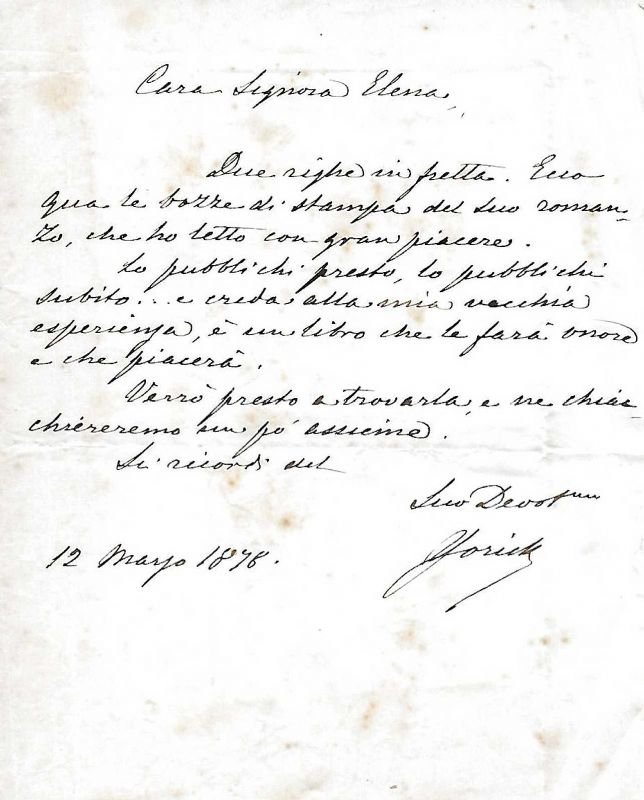 Cara Signora Elena,
Due righe in fretta. Ecco
qua le bozze di stampa del suo roman-
zo, che ho letto con gran piacere.
Lo pubblichi presto, lo pubblichi
subito... e creda alla mia vecchia
esperienza, è un libro che le farà onore
e che piacerà.
Verrò presto a trovarla, e ne chiac-
chiereremo un pò assieme.
Si ricordi del
Suo Devotmo
Yorick
12 Marzo 1878.